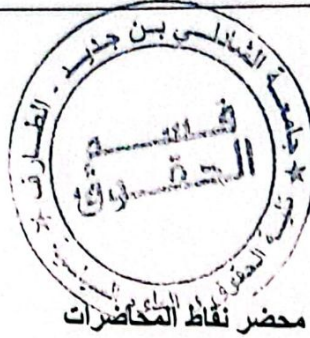 جامعة الشاذلي بن جديد - الطارف
قسم
الحقوق
كلية الحقوق
محضر نقاط المحاضرات